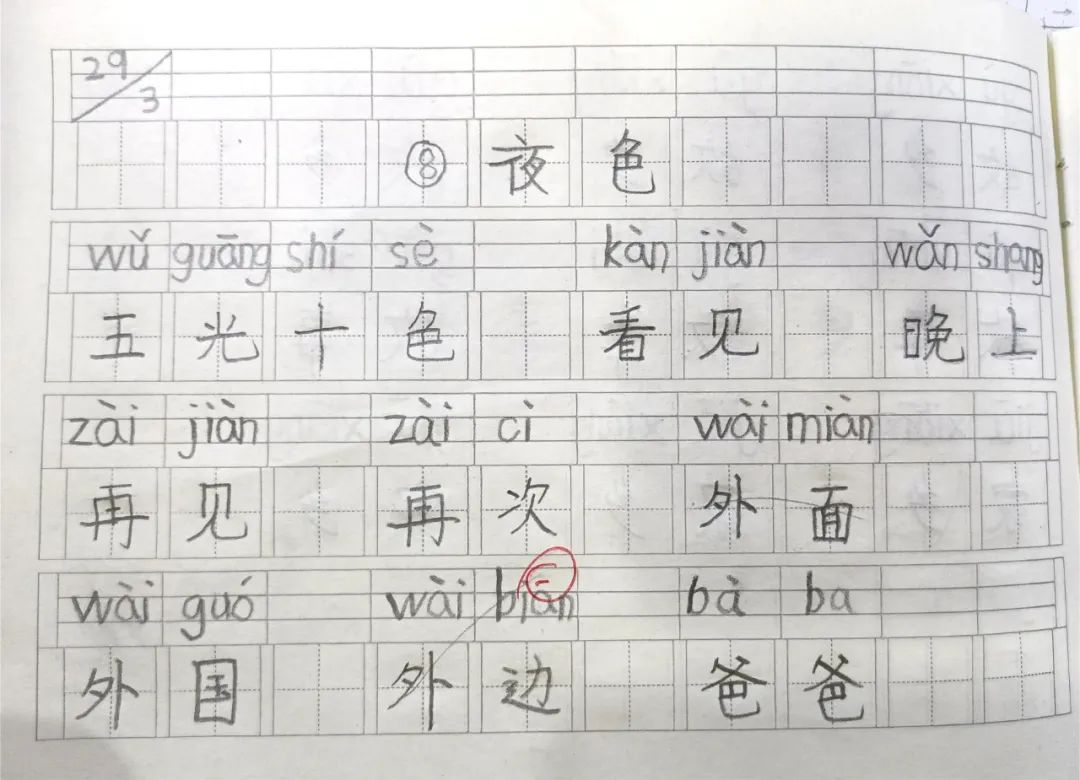 29/3
⑧ 夜色
wǔ guāng shí sè kàn jiàn wǎn shang
五光十色 看见 晚上
zài jiàn zài cì wài miàn
再见 再次 外面
wài guó wài biān bà ba
外国 外边 爸爸